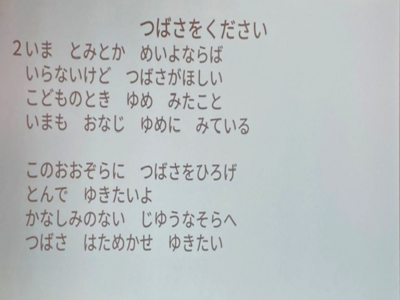 つばさをください
2 いま　とみとか　めいよならば
いらないけど　つばさがほしい
こどものとき　ゆめ　みたこと
いまも　おなじ　ゆめに　みている
このおおぞらに　つばさをひろげ
とんで　ゆきたいよ
かなしみのない　じゆうなそらへ
つばさ　はためかせ　ゆきたい